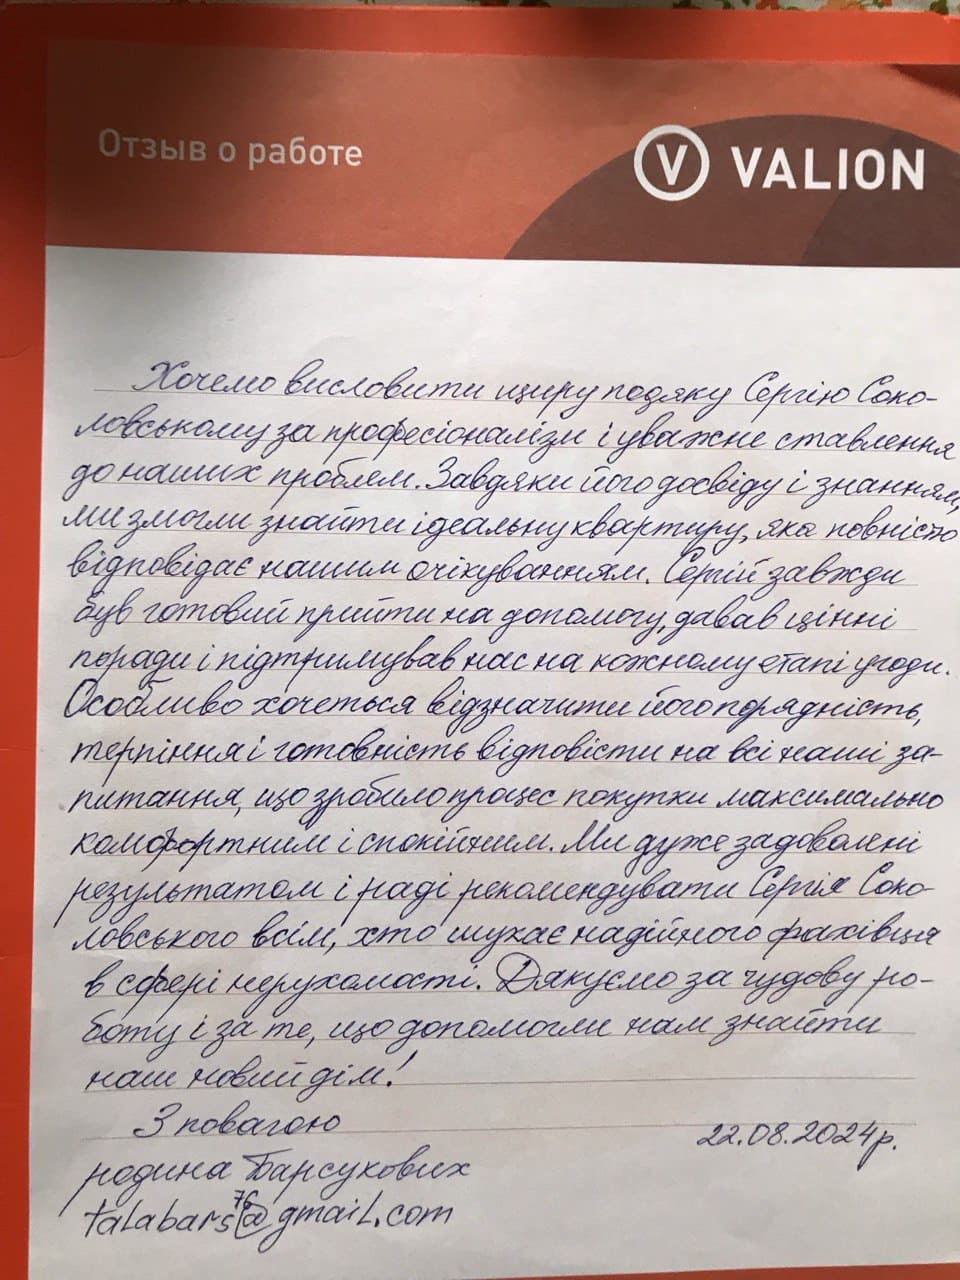 Отзыв о работе
V VALION
Хочемо висловити щиру подяку Сергію Соко-
ловському за професіоналізм і уважне ставлення
до наших проблем. Завдяки його досвіду і знанням,
ми змогли знайти ідеальну квартиру, яка повністю
відповідає нашим очікуванням. Сергій завжди
був готовий прийти на допомогу, давав цінні
поради і підтримував нас на кожному етапі угоди.
Особливо хочеться відзначити його порядність,
терпіння і готовність відповісти на всі наші за-
питання, що зробило процес покупки максимально
комфортним і спокійним. Ми дуже задоволені
результатом і раді рекомендувати Сергія Соко-
ловського всім, хто шукає надійного фахівця
в сфері нерухомості. Дякуємо за чудову ро-
боту і за те, що допомогли нам знайти
наш новий дім!
З повагою
22.08.2024р.
родина Барсукових
talabars76@gmail.com